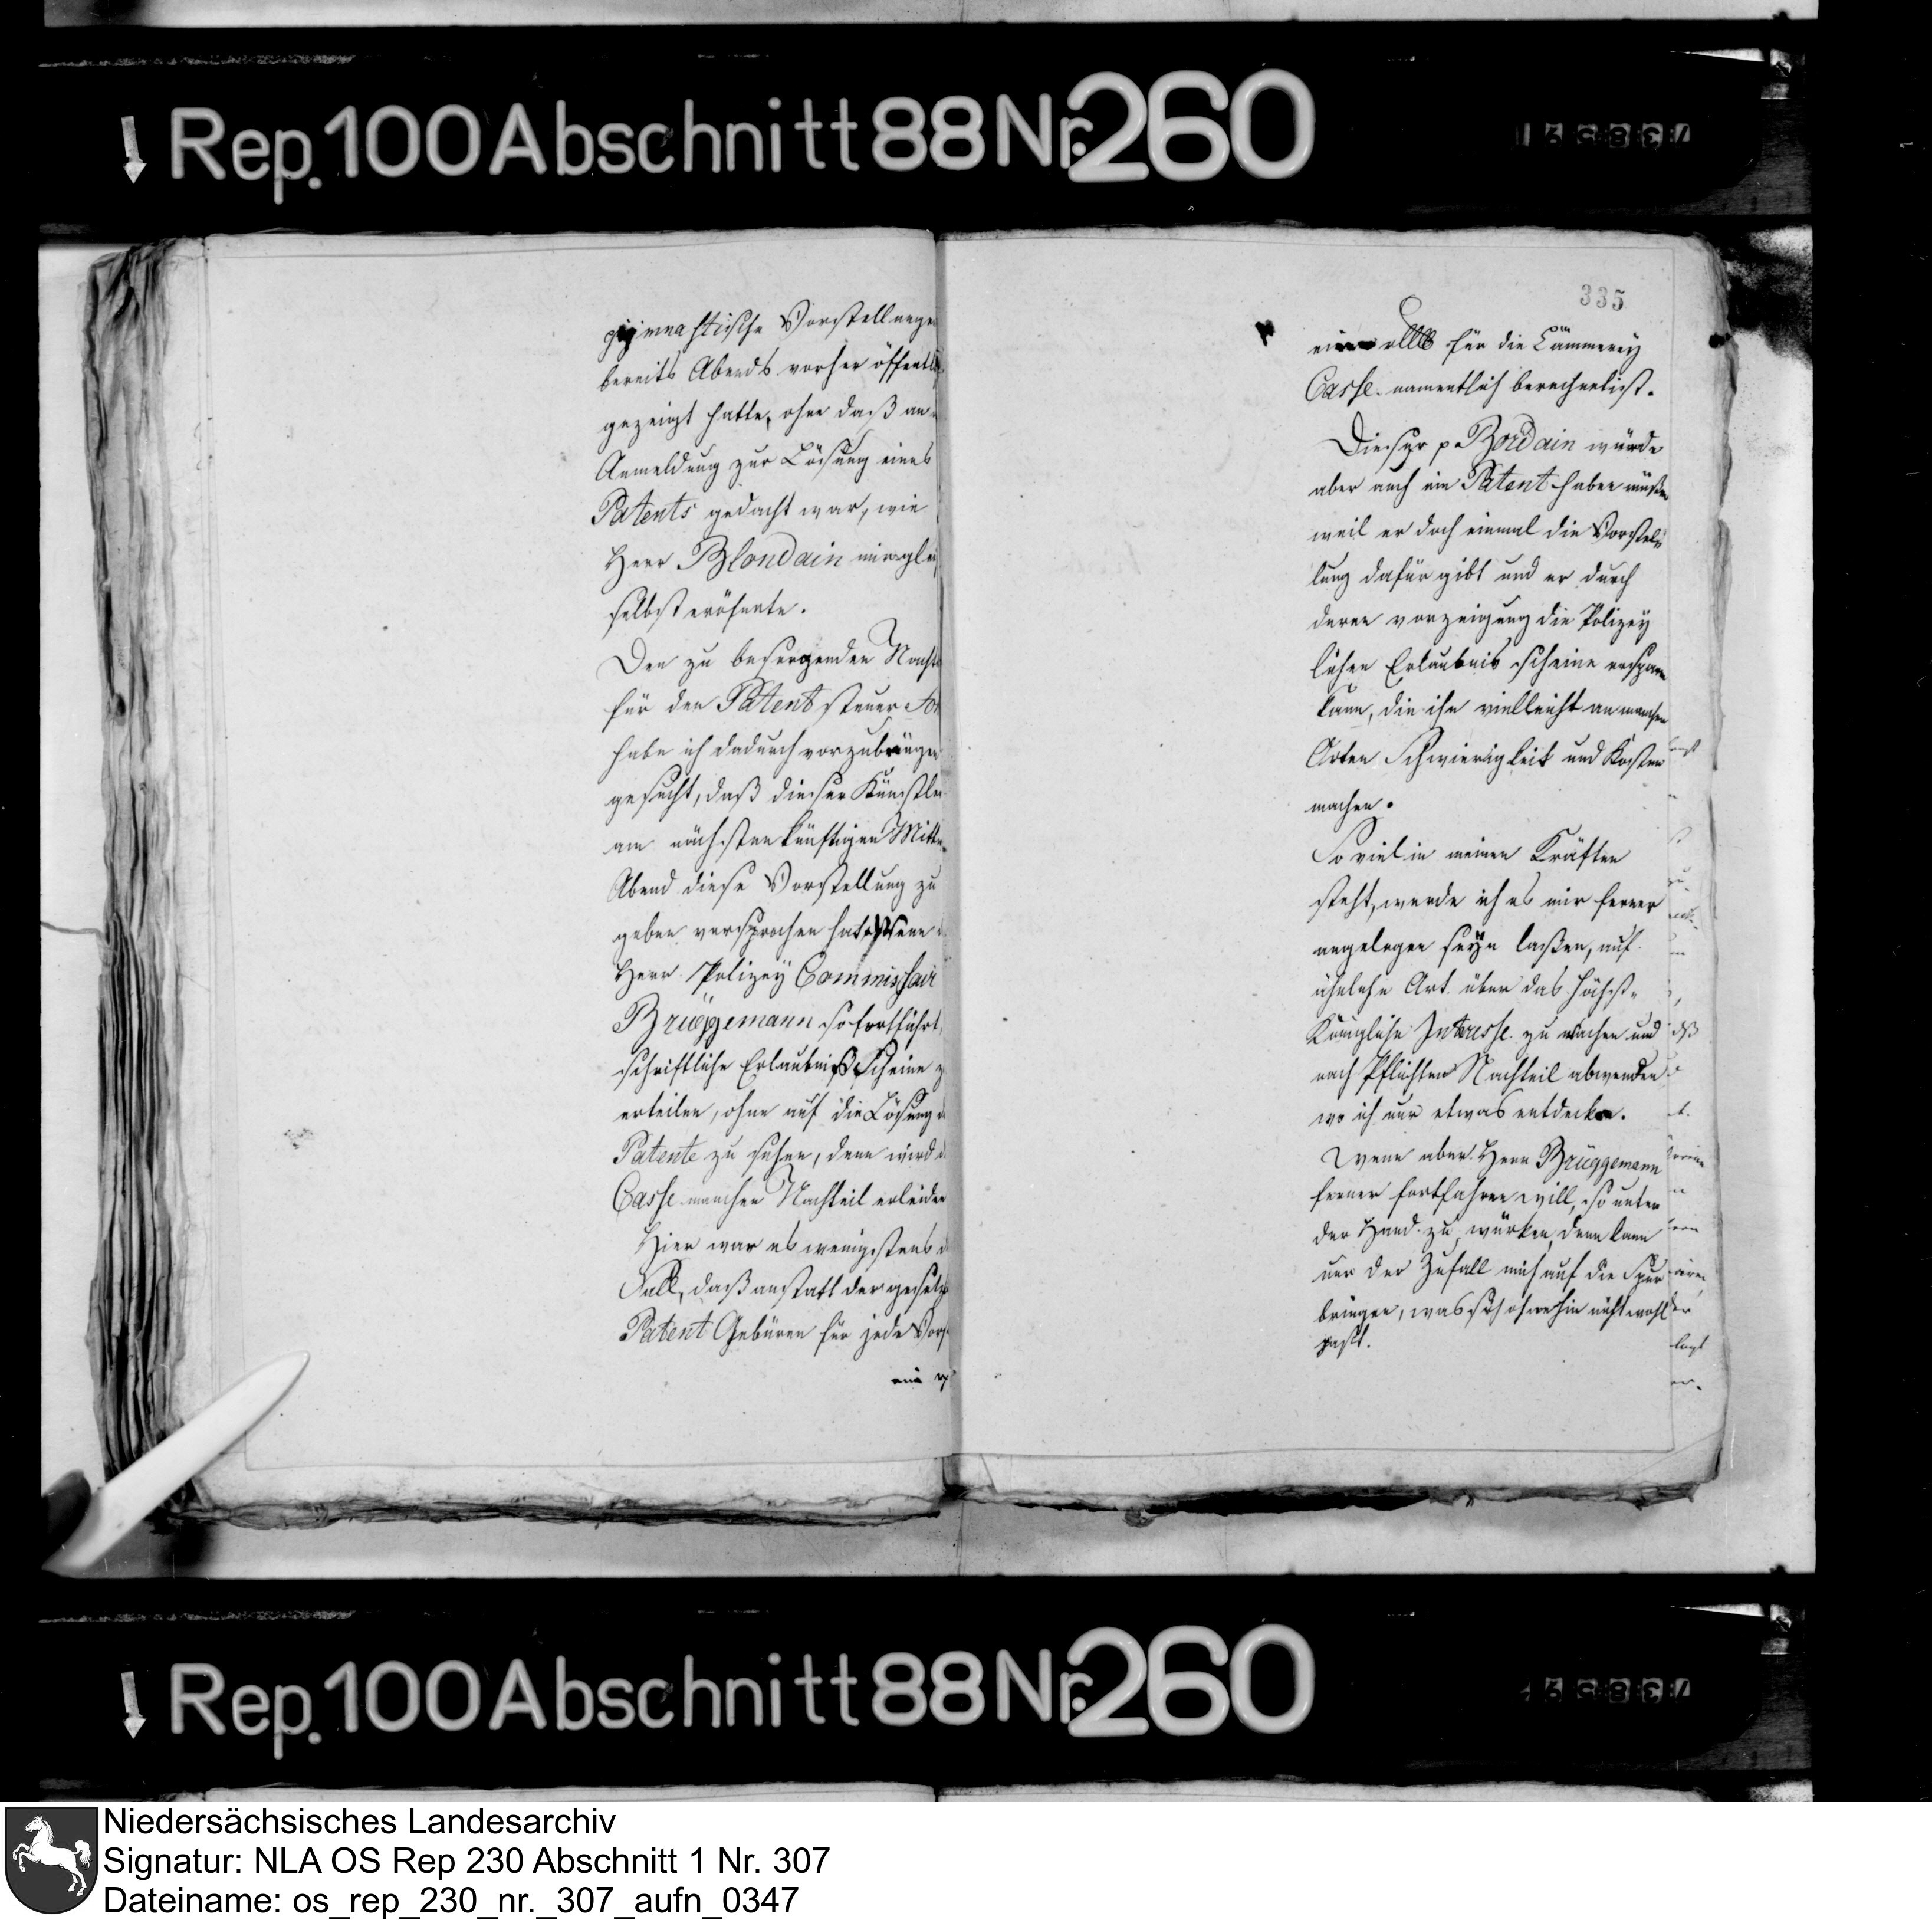 Rep. 100 Abschnitt 88 Nr. 260
gymnastische Vorstellungen
bereits Abends vorher öffentl
gezeigt hatte, ohne daß an
Anmeldung zur Lösung eines
Patents gedacht war, wie
Herr Blondain mir
selbst eröfnete.
Den zu besorgenden Nacht
für den Patentsteuer
habe ich dadurch vorzubeugen
gesucht, daß dieser Künstler
am nächsten künftigen Mitt
Abend diese Vorstellung zu
geben versprochen hat. Wenn
Herr Polizey Commissair
Brüggemann so fortfährt,
schriftliche Erlaubniß Scheine z
erteilen, ohne auf die Lösung d
Patente zu sehen, denn wird d
Casse manchen Nachteil erleiden
Hier war es wenigstens d
Fall, daß anstatt der gesetz
Patent Gebüren für jede Vors
335
für die Cämmerey
Casse namentlich berechnet ist.
Dieser p. Bordain würde
aber auch ein Patent haben müßen
weil er doch einmal die Vorstel
lung dafür gibt und er durch
deren vorzeigung die Polizey
lichen Erlaubnis scheine ersparen
kann, die ihn vielleicht an manchen
Orten Schwierigkeit und Kosten
machen.
So viel in meinen Kräften
steht, werde ich es mir ferner
angelegen seyn laßen, auf
ähnliche Art über das höchst
Königliche Interesse zu wachen und
nach Pflichten Nachteil abwenden
wo ich nur etwas entdecke.
Wenn aber Herr Brüggemann
ferner fortfahren will, so unter
der Hand zu würken, denn kann
nur der Zufall mich auf die Spur
bringen, was sich ohnehin nicht wohl
paßt.
Rep. 100 Abschnitt 88 Nr. 260
Niedersächsisches Landesarchiv
Signatur: NLA OS Rep 230 Abschnitt 1 Nr. 307
Dateiname: os_rep_230_nr._307_aufn_0347